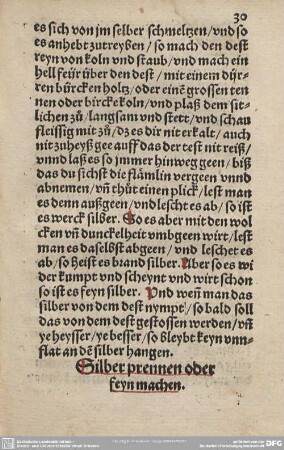 30
es sich von jm selber schmeltzen/ vnd so
es anhebt zutreyßen/ so mach den dest
reyn von koln vnd staub/ vnd mach ein
hell feür über den dest/ mit einem dür-
ren bürcken holtz/ oder einē grossen ten
nen oder bircke koln/ vnd plaß dem sit-
lichen zů/ langsam vnd stett/ vnd schau
fleissig mit zů/ dz es dir nit erkalt/ auch
nit zuheyß gee auff das der test nit reiß/
vnnd laß es so jmmer hinweg geen/ biß
das du sichst die flämlin vergeen vnnd
abnemen/ vñ thůt einen plick/ lest man
es denn außgeen/ vnd lescht es ab/ so ist
es werck silber. So es aber mit den wol
cken vñ dunckelheit vmbgeen wirt/ lest
man es daselbst abgeen/ vnd leschet es
ab/ so heist es brand silber. Aber so es wi
der kumpt vnd scheynt vnd wirt schon
so ist es feyn silber. Vnd weñ man das
silber von dem dest nympt/ so bald soll
das von dem dest gestossen werden/ vñ
ye heysser/ ye besser/ so bleybt keyn vnn-
flat an dē silber hangen.
Silber prennen oder
feyn machen.
DFG